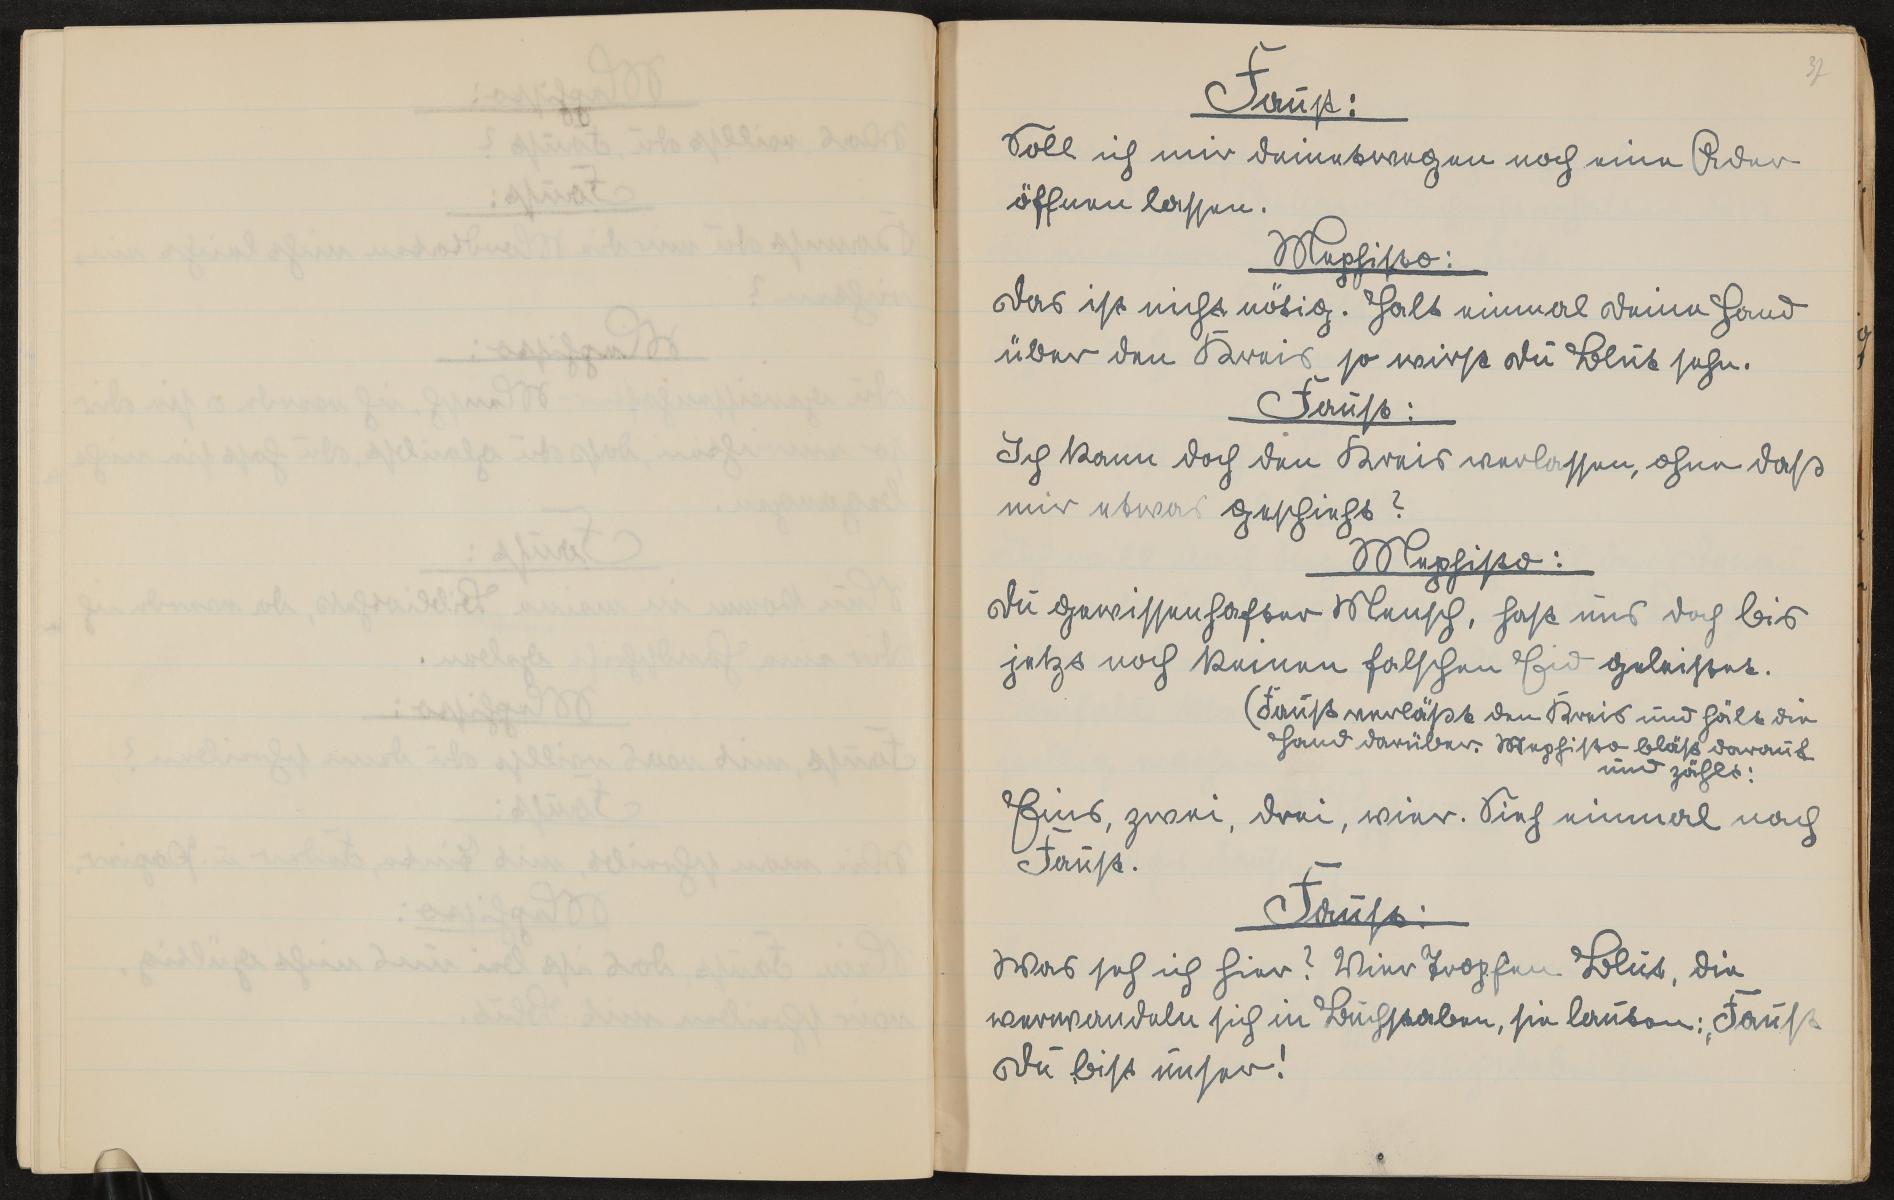 37
Faust:
Soll ich mir deinetwegen noch eine Ader
öffnen lassen.
Mephisto:
Das ist nicht nötig. Halt einmal deine Hand
über den Kreis so wirst du Blut sehn.
Faust:
Ich kann doch den Kreis verlassen, ohne daß
mir etwas geschieht?
Mephisto:
Du gewissenhafter Mensch, hast uns doch bis
jetzt noch keinen falschen Eid geleistet.
(Faust verläßt den Kreis und hält die
Hand darüber. Mephisto bläst darauf
und zählt:
Eins, zwei, drei, vier. Sieh einmal nach
Faust.
Faust:
Was seh ich hier? Vier Tropfen Blut, die
verwandeln sich in Buchstaben, sie lauten: Faust
du bist unser!